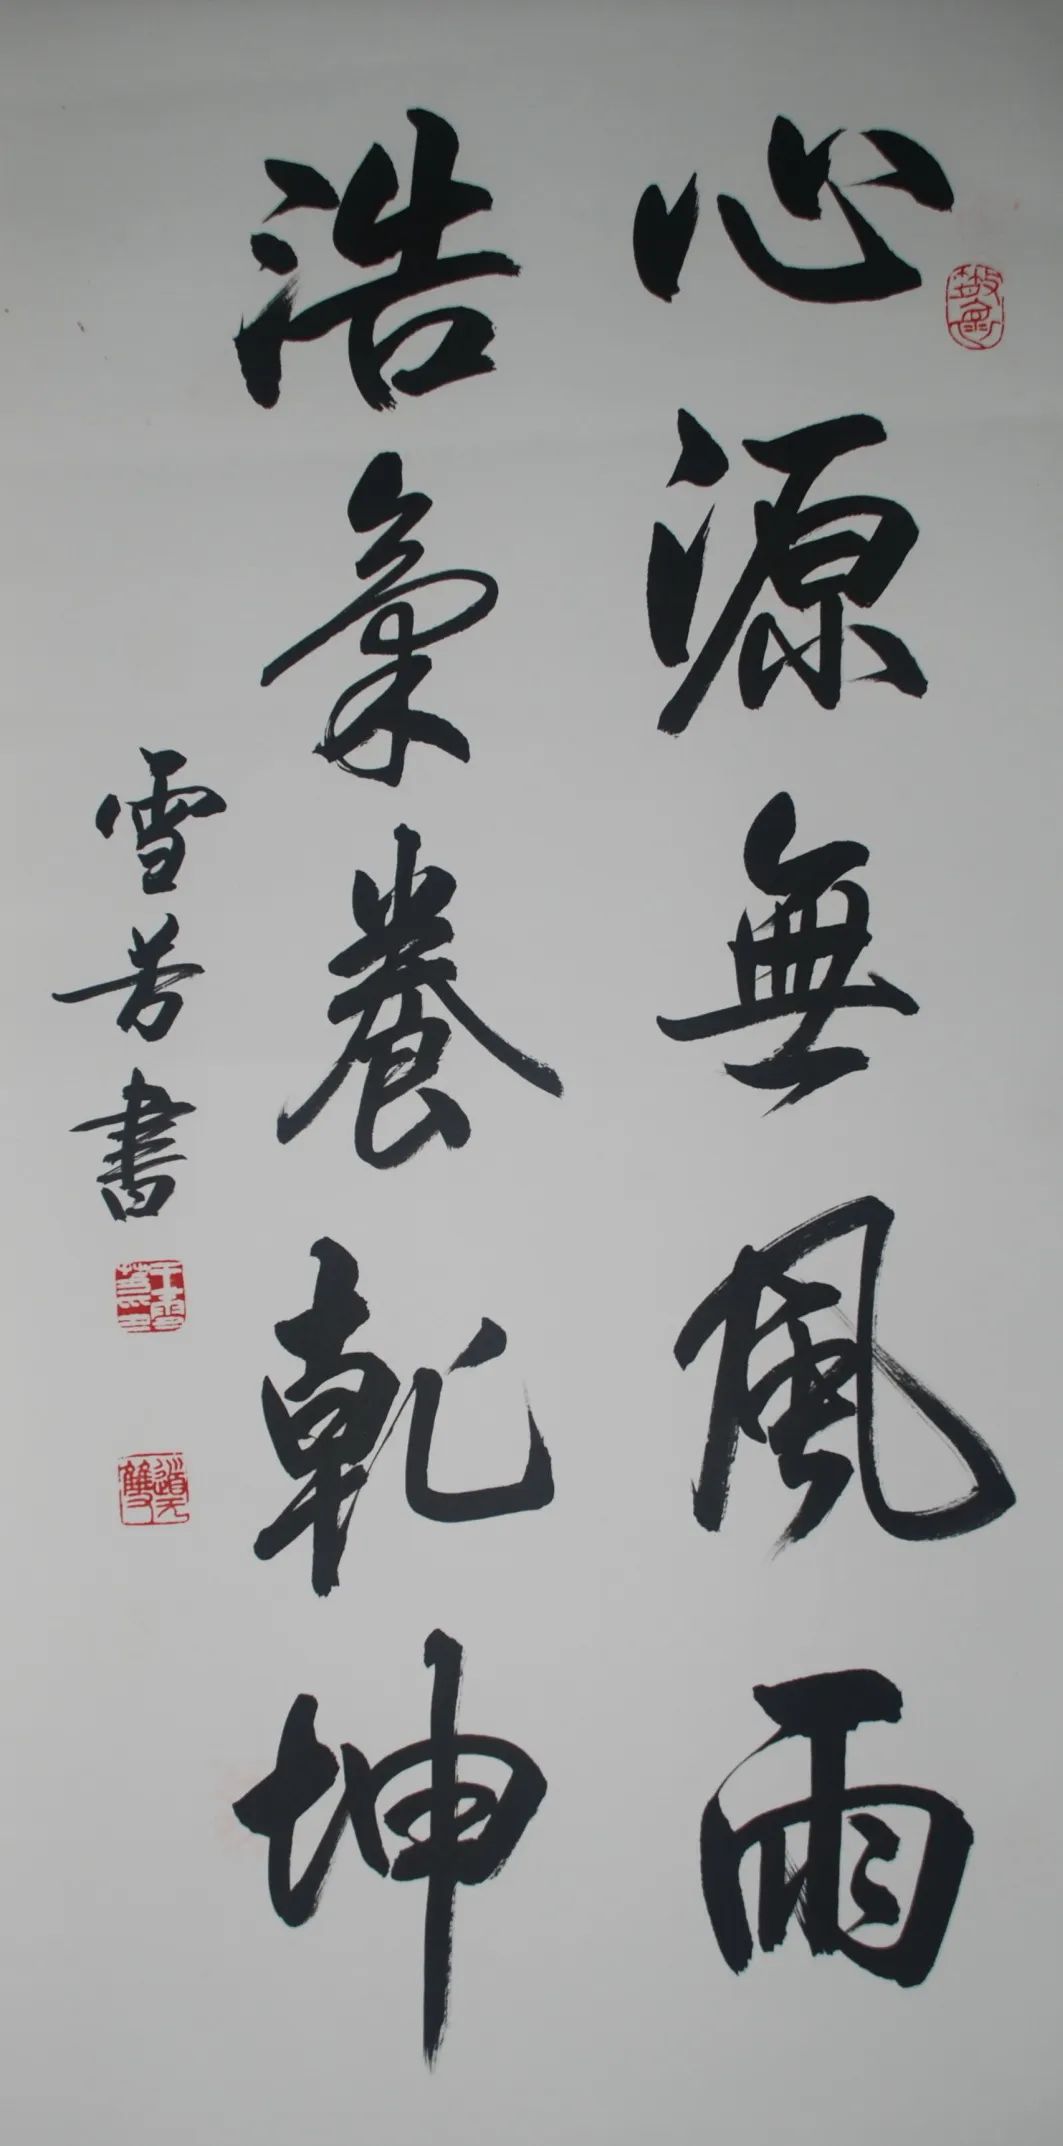 心源無風雨
浩氣養乾坤
雪芳書